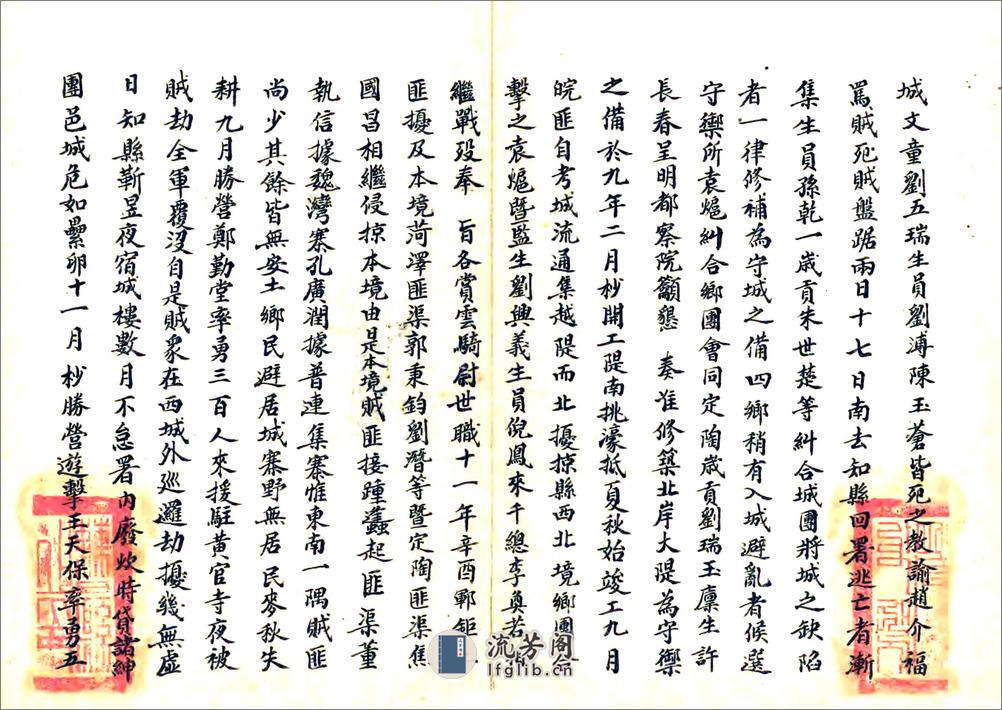 城文童劉五瑞生員劉溥陳玉蒼皆死之教諭趙介福
罵賊死賊盤踞兩日十七日南去知縣回署逃亡者漸
集生員孫乾一歲貢朱世楚等糾合城團將城之缺陷
者一律修補為守城之備四鄉稍有入城避亂者候選
守禦所袁熄糾合鄉團會同定陶歲貢劉瑞玉廩生許
長春呈明都察院籲懇 奏准修築北岸大隄為守禦
之備於九年二月杪開工隄南挑濠抵夏秋始竣工九月
皖匪自考城流通集越隄而北擾掠縣西北境鄉團
擊之袁熄暨監生劉興義生員倪鳳來千總李奐若
繼戰歿奉 旨各賞雲騎尉世職十一年辛酉鄆鉅
匪擾及本境菏澤匪渠郭秉鈞劉潛等暨定陶匪渠焦
國昌相繼侵掠本境由是本境賊匪接踵蠭起匪渠董
執信據魏灣寨孔廣潤據普連集寨惟東南一隅賊匪
尚少其餘皆無安土鄉民避居城寨野無居民麥秋失
耕九月勝營鄭勤堂率勇三百人來援駐黃官寺夜被
賊劫全軍覆沒自是賊眾在西城外巡邏劫擾幾無虛
日知縣靳昱夜宿城樓數月不怠署內廢炊時貸諸紳
團邑城危如纍卵十一月杪勝營遊擊王天保率勇五
流芳阁
lfglib.cn